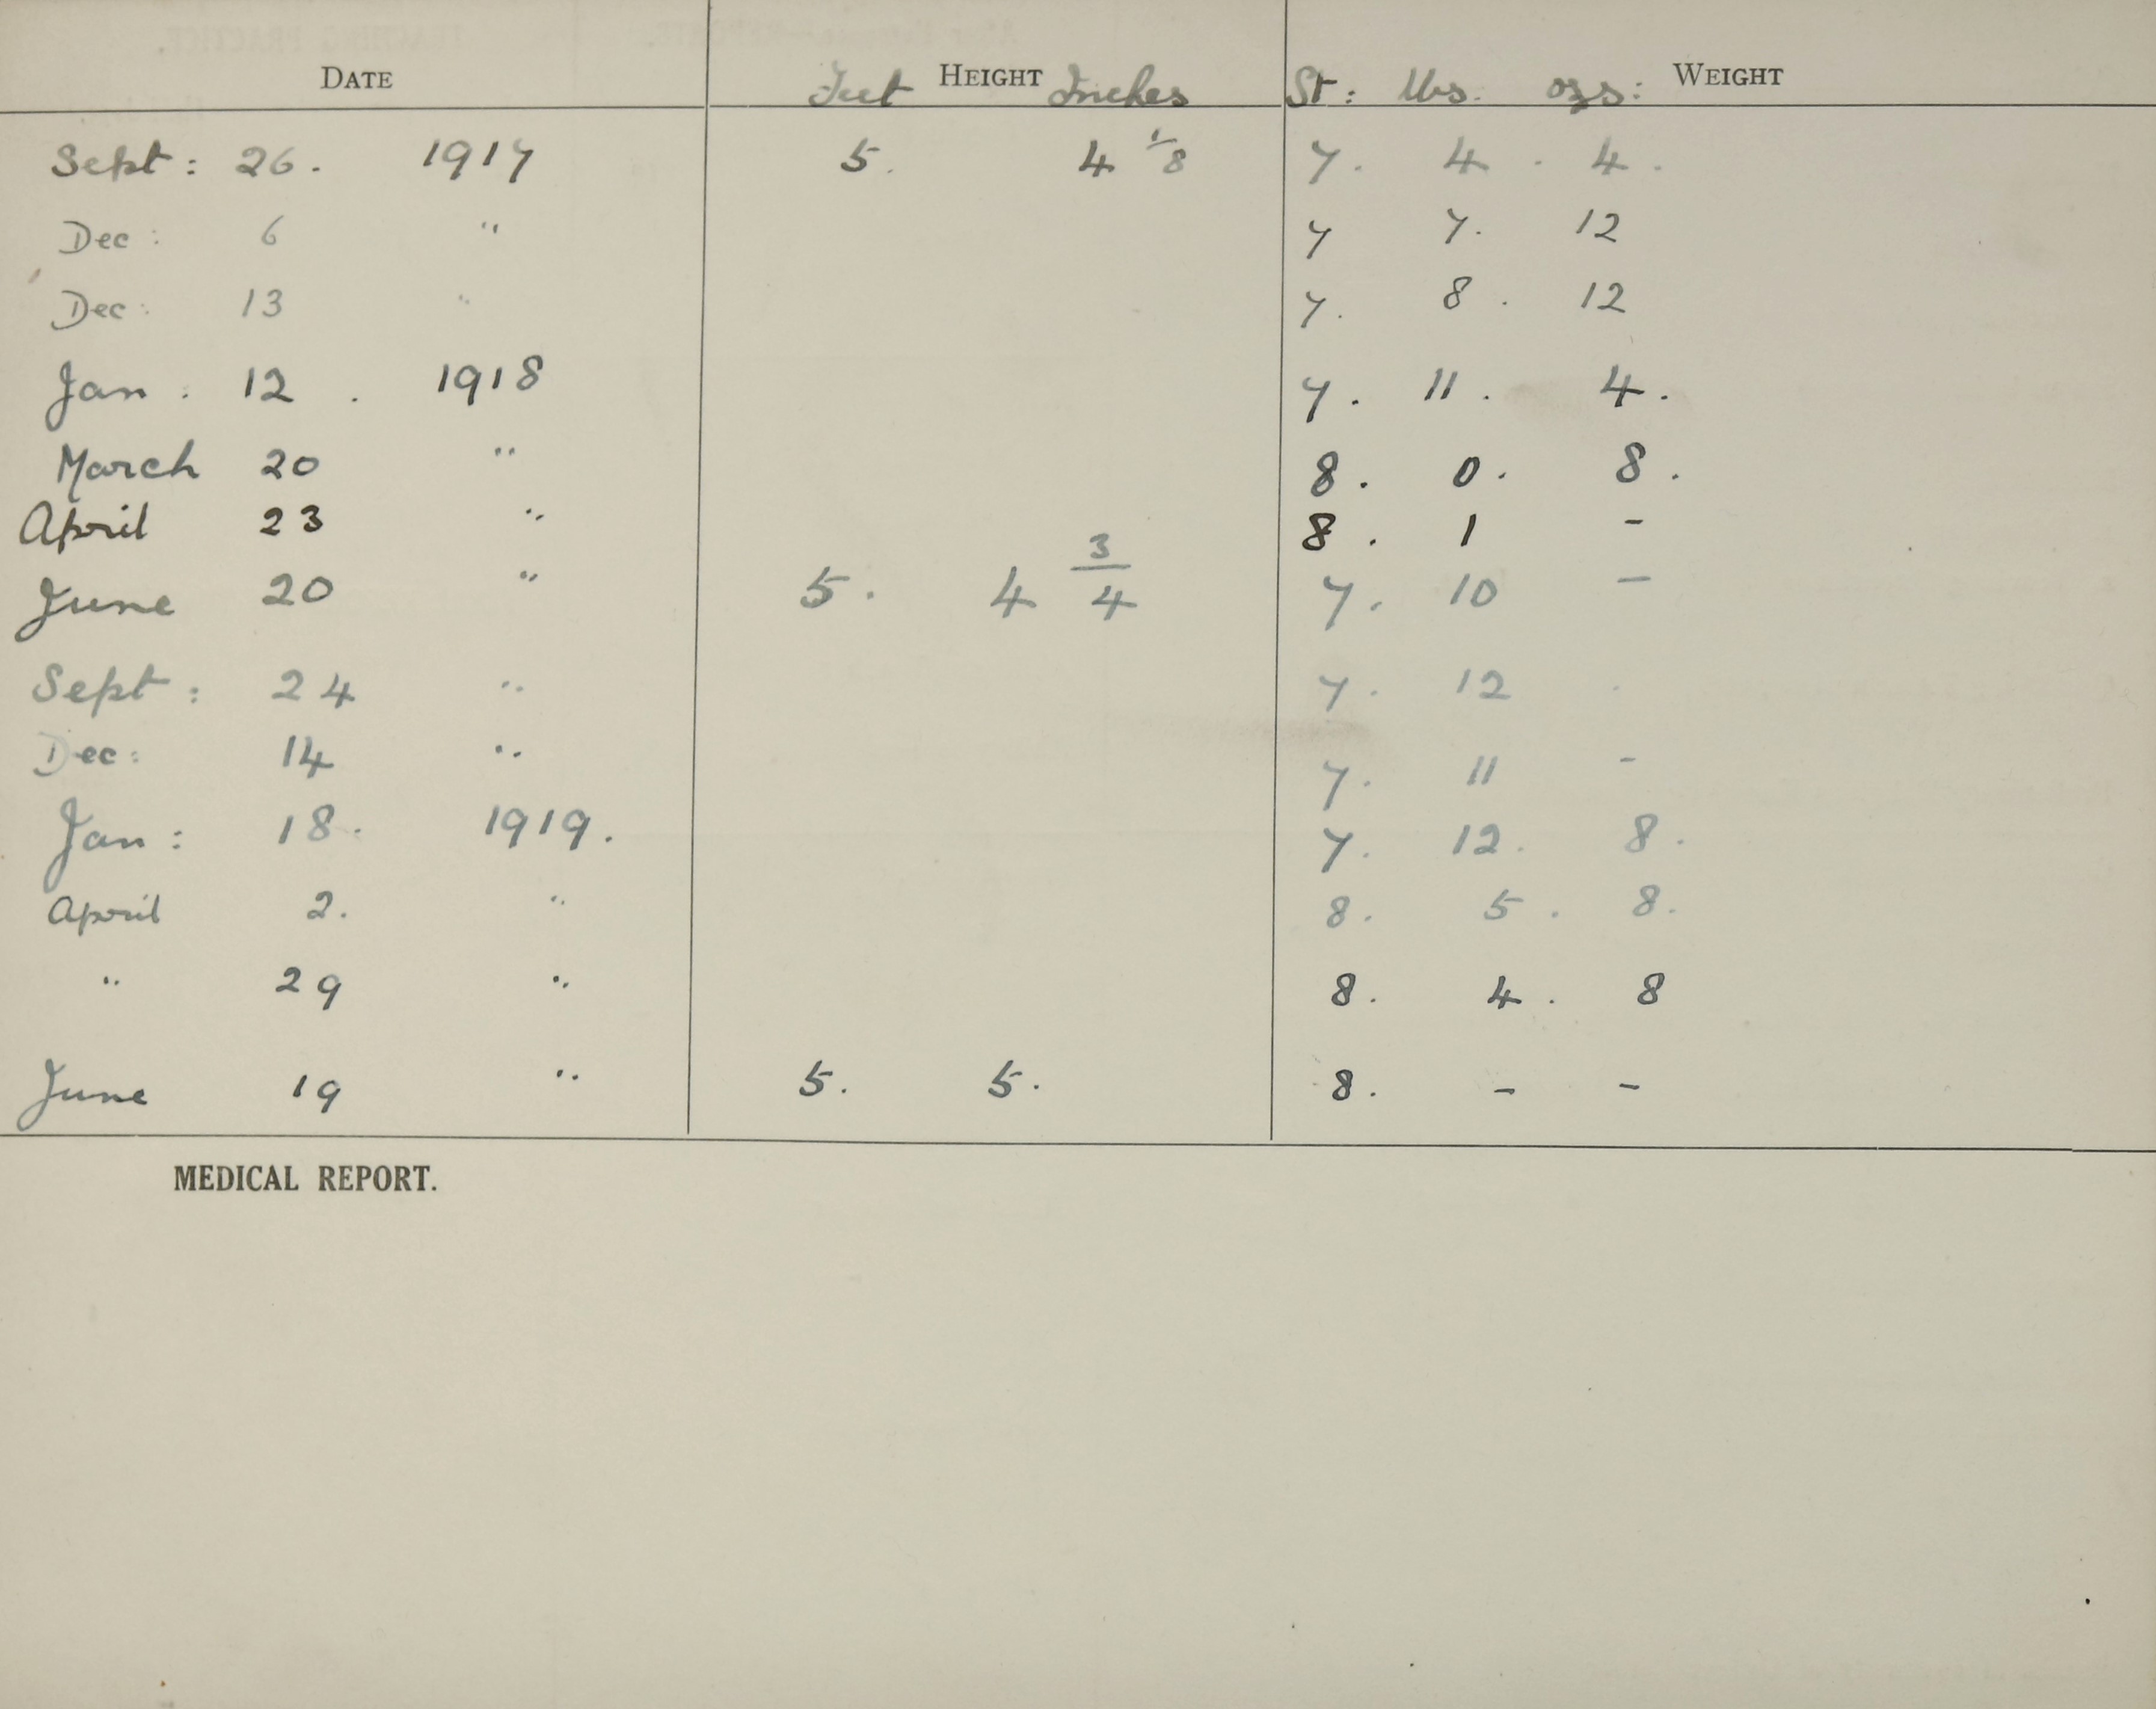 DATE Feet HEIGHT Inches St: lbs. ozs: WEIGHT
Sept: 26. 1917 5. 4 1/8 7. 4. 4.
Dec: 6 " 7 7. 12
Dec: 13 " 7. 8. 12
Jan. 12. 1918 7. 11. 4.
March 20 " 8. 0. 8.
April 23 " 8. 1 -
June 20 " 5. 4 3/4 7. 10 -
Sept: 24 " 7. 12 .
Dec: 14 " 7. 11 -
Jan: 18. 1919. 7. 12. 8.
April 2. " 8. 5. 8.
" 29 " 8. 4. 8
June 19 " 5. 5. 8. - -
MEDICAL REPORT.